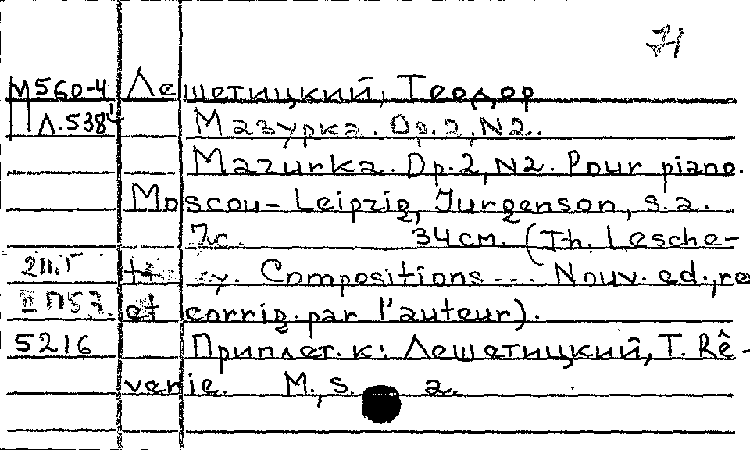 71
М560-4 Лешетицкий, Теодор
Л.538 Мазурка. Op.2, N2.
Mazurka. Op.2, N2. Pour piano.
Moscou-Leipzig, Jurgenson, s.a.
7с. 34см. (Th. Lesche-
y. Compositions --- Nouv. ed., re
et corrig. par l'auteur).
5216 Приплет. к: Лешетицкий, Т. Rê-
verie. M., s. a.